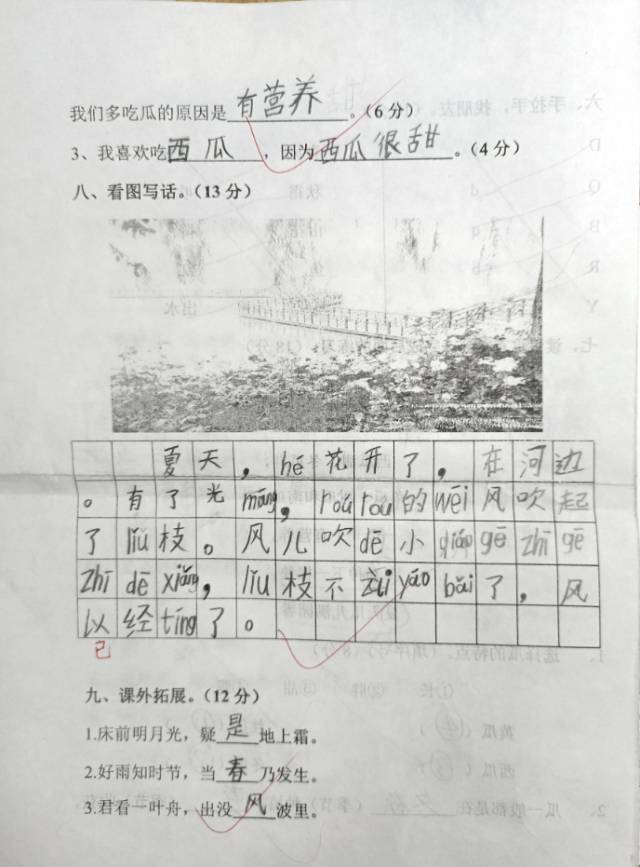 我们多吃瓜的原因是有营养。（6分）
3、我喜欢吃西瓜，因为西瓜很甜。（4分）
八、看图写话。（13分）
夏天，hē花开了，在河边
。有了光máng，róu rou的wēi风吹起
了liǔ枝。风儿吹dē小qiáo gē zhī gē
zhī dē xiǎng，liǔ枝不zài yáo bǎi了，风
以经tíng了。
已
九、课外拓展。（12分）
1.床前明月光，疑是地上霜。
2.好雨知时节，当春乃发生。
3.君看一叶舟，出没风波里。